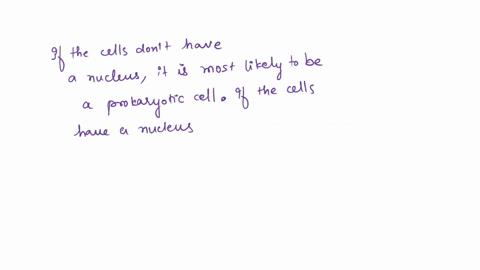 If the cells don't have
a nucleus, it is most likely to be
a prokaryotic cell. If the cells
have a nucleus